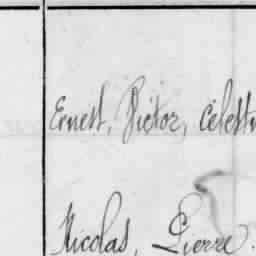 Ernest, Victor, Célest
Nicolas, Pierre.